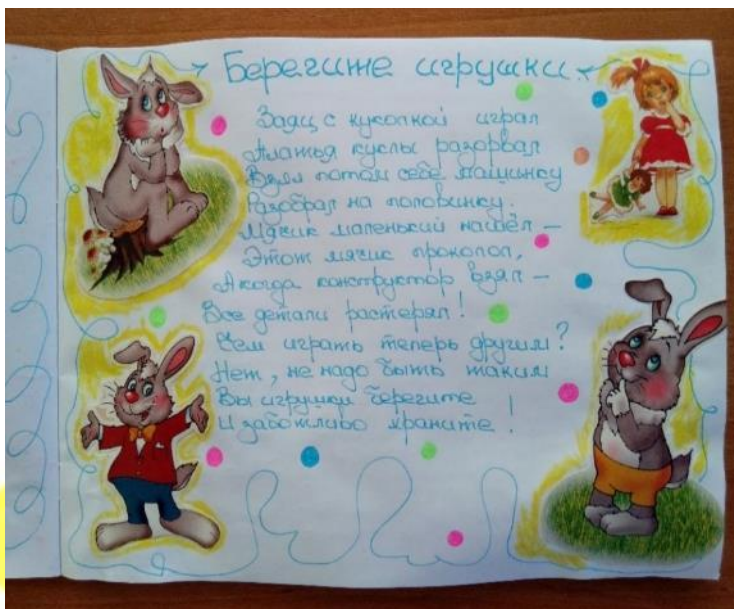 Берегите игрушки.
Заяц с куколкой играл
Платья куклы разорвал
Взял потом себе машинку
Разобрал на половинку.
Мячик маленький нашёл –
Этот мячик проколол,
А когда конструктор взял –
Все детали растерял!
Чем играть теперь другим?
Нет, не надо быть таким
Вы игрушки берегите
И заботливо храните!